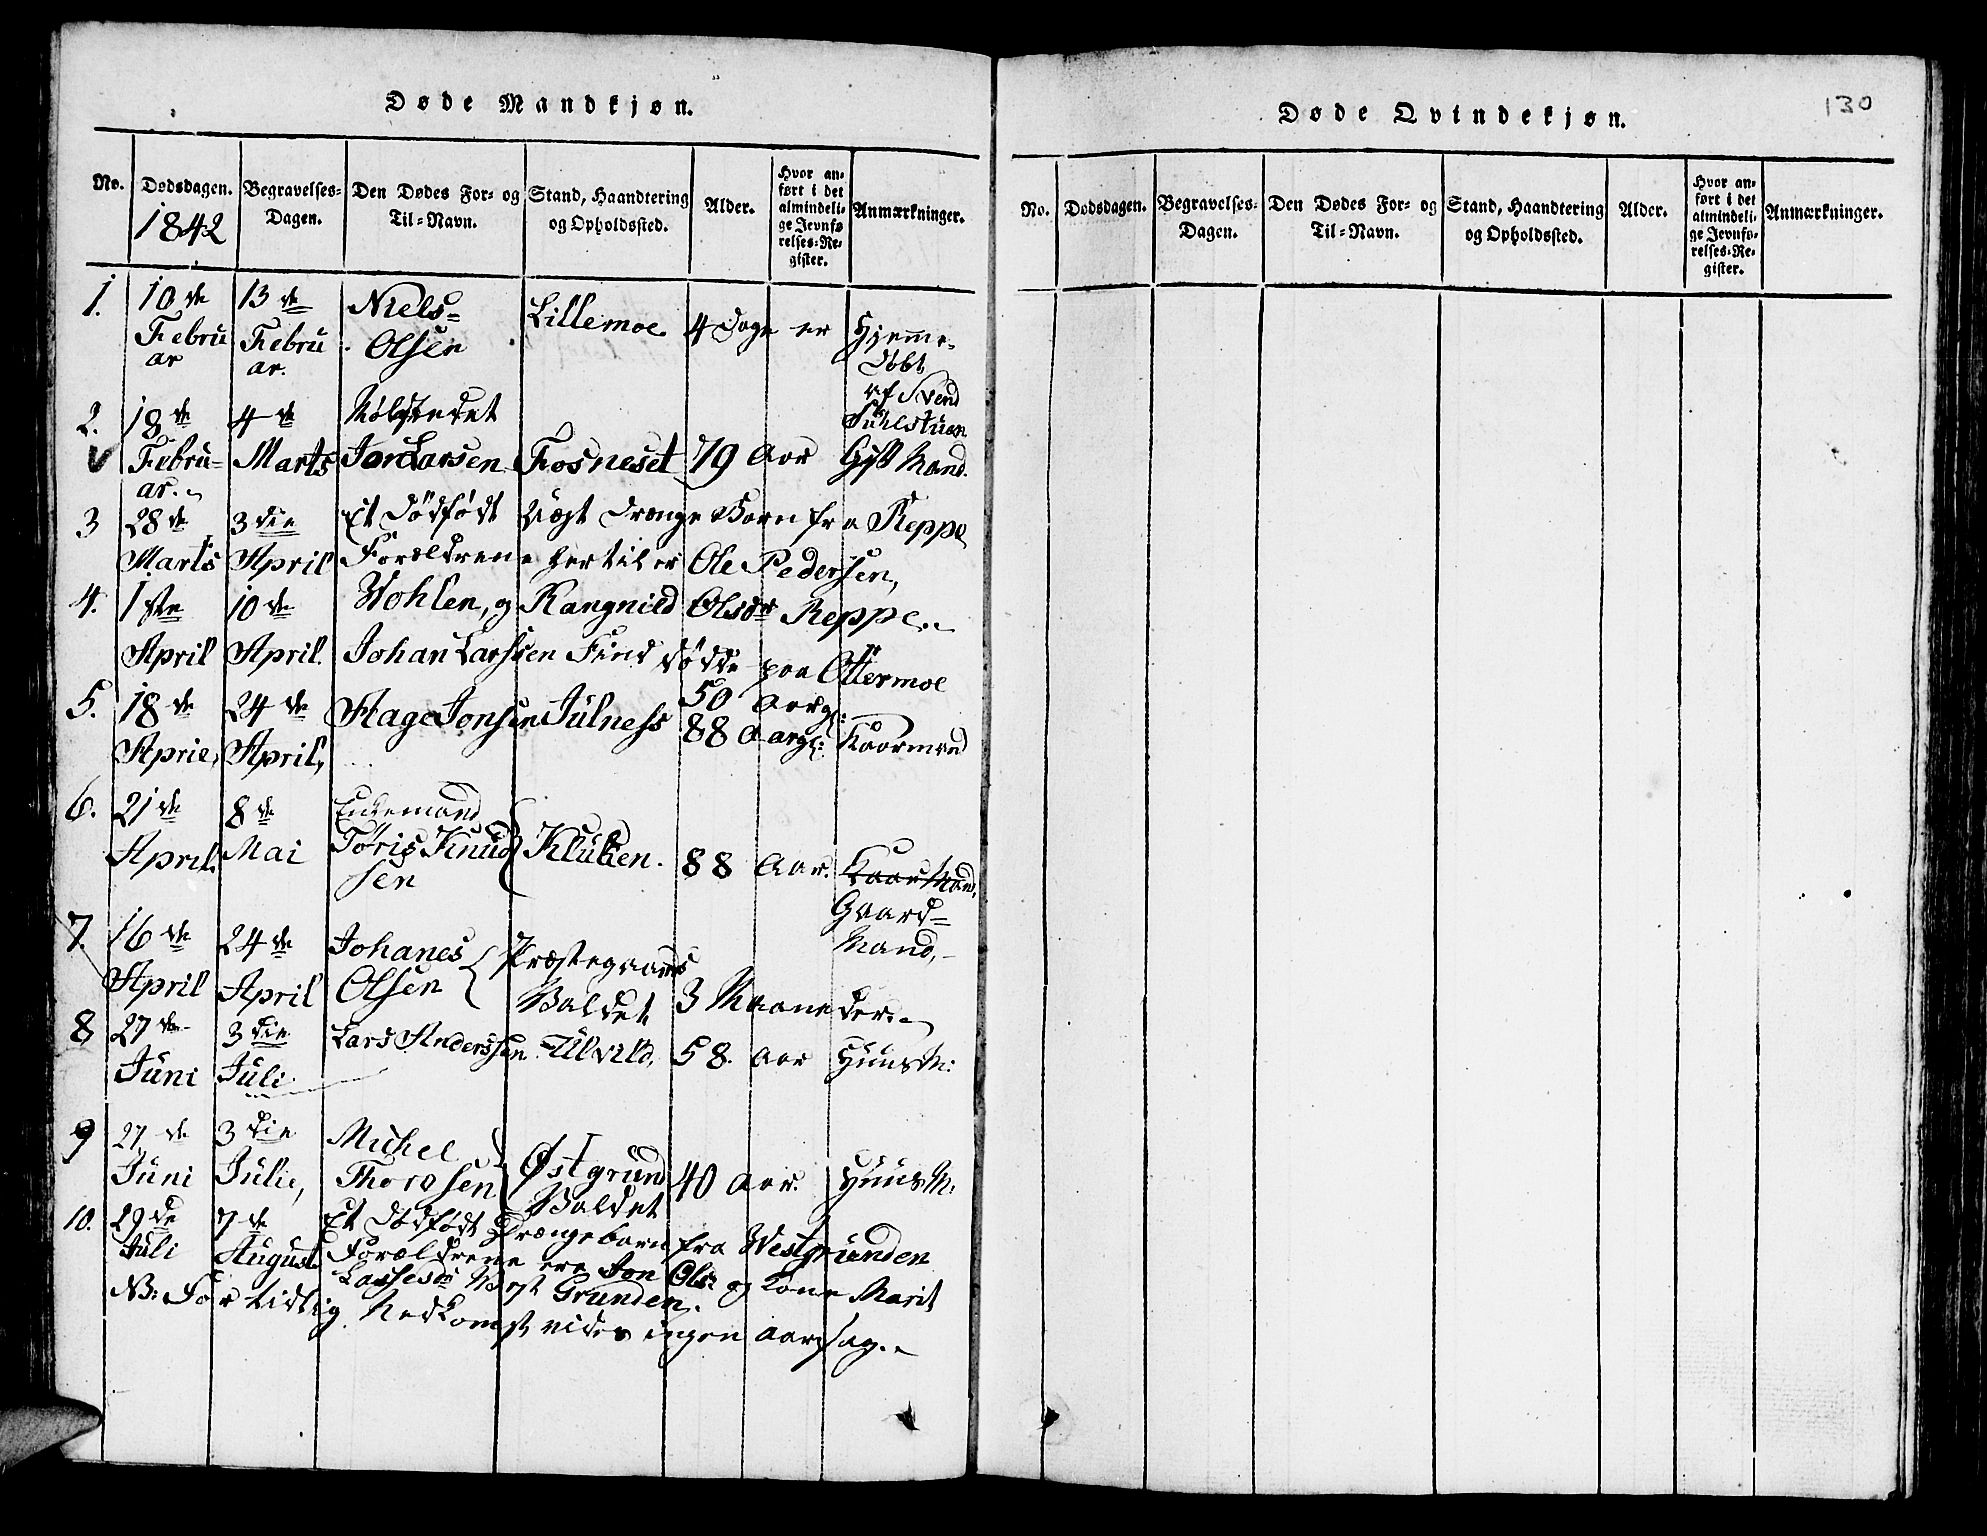 Døde Mandkjøn.
No. Dødsdagen. Begravelses-Dagen. Den Dødes For- og Til-Navn. Stand, Haandtering og Opholdssted. Alder. Hvor anført i det almindelige Jevnførelses-Register. Anmærkninger.
1842
1. 10de Februar 13de Februar. Niels Olsen Lillemoe 4 Dage er Hjemmedøbt af Svend
2. 18de Februar. 4de Marts Jon Larsen Fosneset 79 Aar Gift Mand.
3 28de Marts 3die April Et dødfødt Drenge Barn fra Reppe
Forældrene hertil er Ole Pedersen,
Wohlen, og Rangnild Olsdr Reppe.
4. 1ste April 10de April. Johan Larssen Find døde paa Ottermoe
50 Aar gl:
5. 18de April, 24de April, Hage Jonsen Julness 88 Aar gl: Kaarmand
6. 21de April. 8de Mai Enkemand Tøris Knudsen Klüken. 88 Aar. Kaar Mand, Gaard-Mand,
7. 16de April 24de April Johanes Olsen Præstegaards Valdet 3 Maaneder.
8 27de Juni 3die Juli Lars Anderssen Ulvild, 58. Aar Huus M:
9 27de Juni 3die Julie, Michel Thorssen Østgrund Valdet 40 Aar. Huus M:
10. 29de Juli 7de August Et dødfødt Drængebarn fra Westgrunden
Forældrene ere Jon Ols: og Kone Marit
Lassesd Vest Grunden.
NB: For tidlig Nedkomst vides ingen Aarsag.
130
Døde Qvindekjøn.
No. Dødsdagen. Begravelses-Dagen. Den Dødes For- og Til-Navn. Stand, Haandtering og Opholdssted. Alder. Hvor anført i det almindelige Jevnførelses-Register. Anmærkninger.